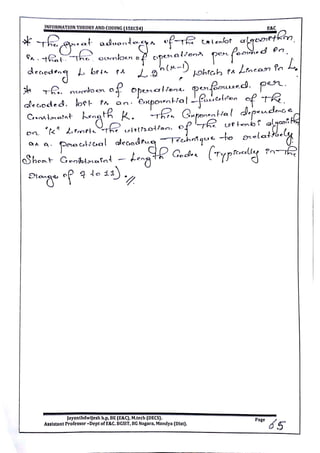 INFORMATION THEORY AND CODING (15EC54) E&C
* The great advantage of the Viterbi algorithm
is that the number of operations performed in
decoding L bits is L2^n(k-1) which is Linear in L
* The number of operations performed per
decoded bit is an Exponential - function of the
Constraint Length K. This Exponential dependence
on "K" Limits the utilisation of the Viterbi algorithm
as a practical decoding Technique to relatively
Short Constraint - Length Codes (Typically in the
Range of 7 to 11).
Jayanthdwijesh h.p, BE (E&C), M.tech (DECS). Page
Assistant Professor –Dept of E&C, BGSIT, BG Nagara, Mandya (Dist). 65